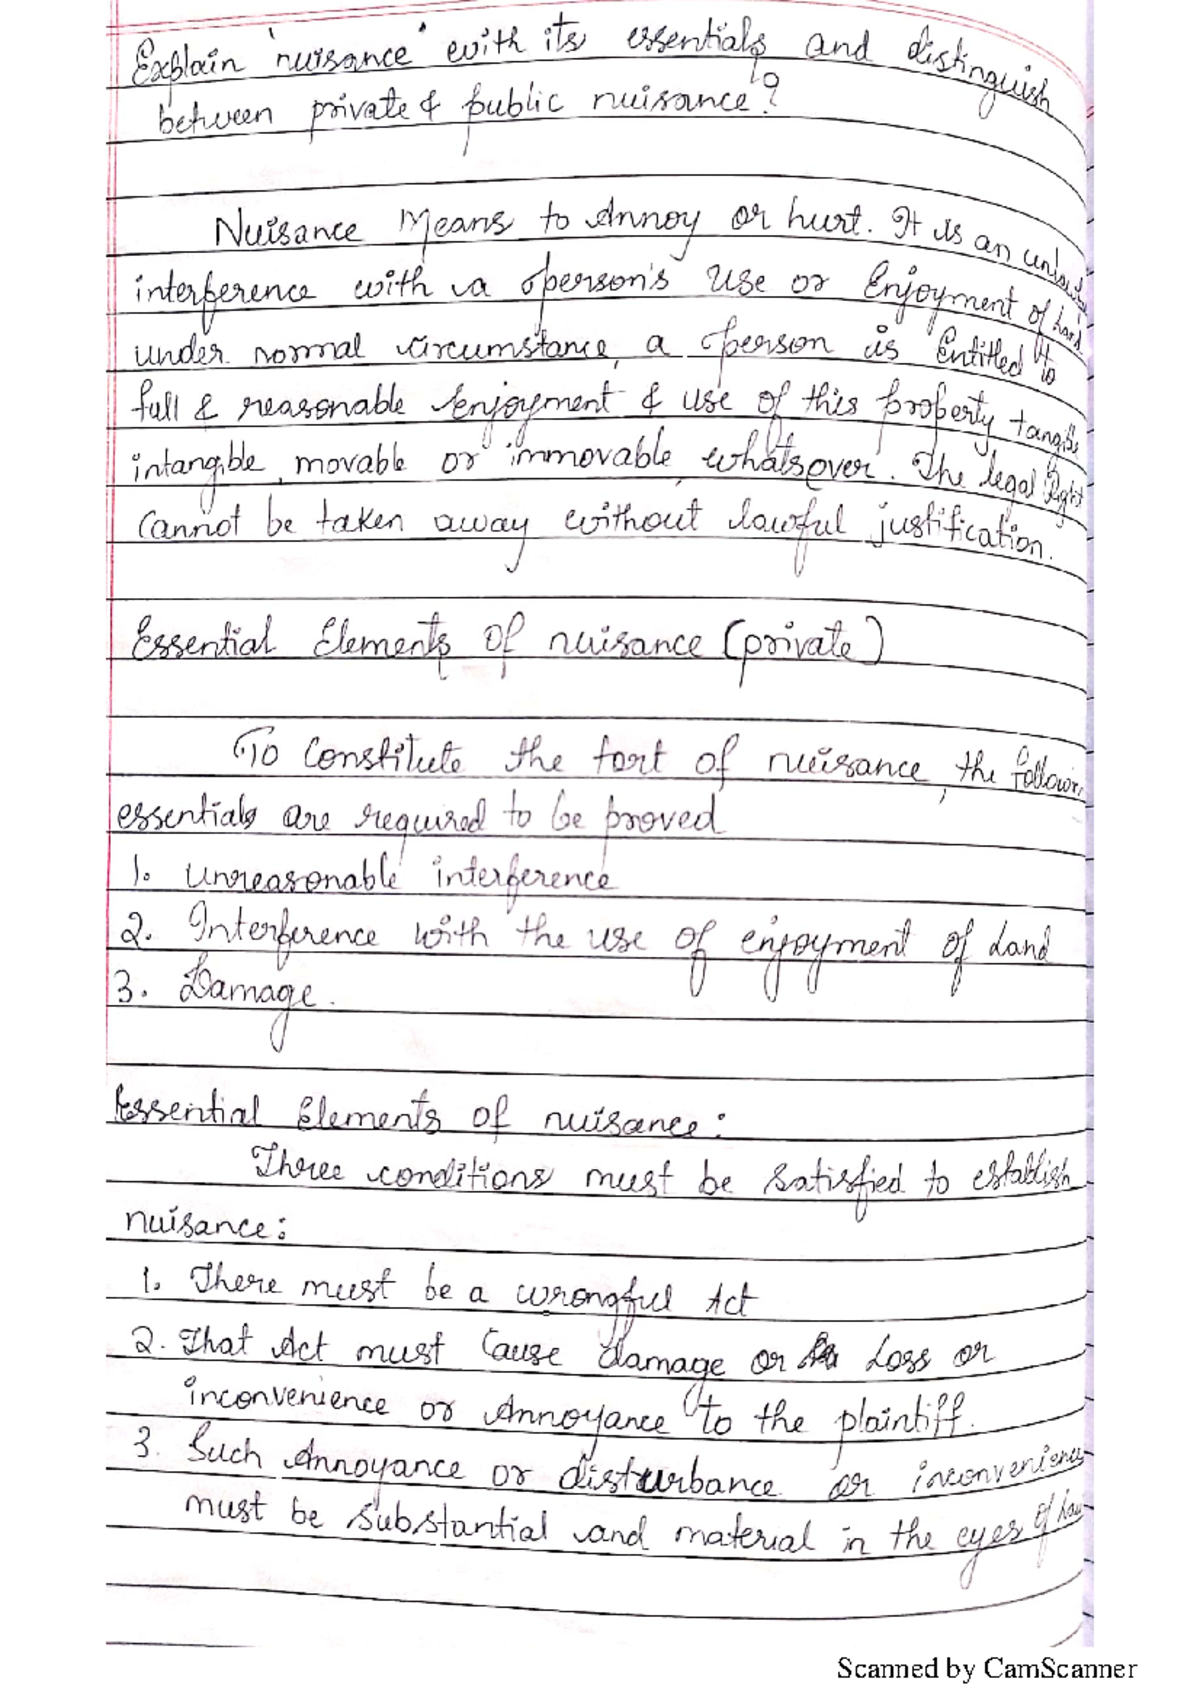 Explain 'nuisance' with its essentials and distinguish
between private & public nuisance?
Nuisance Means to Annoy or hurt. It is an
interference with a person's use or Enjoyment of land
under normal circumstance, a person is Entitled to
full & reasonable enjoyment & use of this property tangible
intangible, movable or immovable whatsover. The legal Right
Cannot be taken away without lawful justification.
Essential Elements of nuisance (private)
To Constitute the tort of nuisance, the
essentials are required to be proved
1. unreasonable interference
2. Interference with the use of enjoyment of Land
3. Damage.
Essential Elements of nuisance:
Three conditions must be satisfied to establish
nuisance:
1. There must be a wrongful Act
2. That Act must Cause damage or Loss or
inconvenience or Annoyance to the plaintiff.
3. Such Annoyance or disturbance or inconvenience
must be substantial and material in the eyes of
Scanned by CamScanner